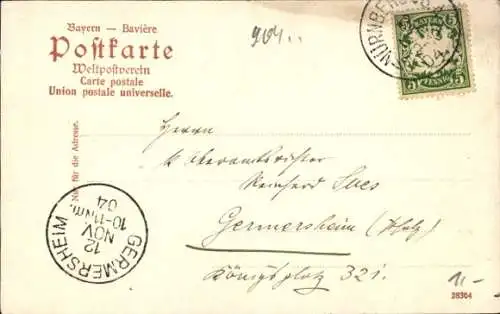 Bayern — Bavière
904..
Postkarte
Weltpostverein
Carte postale
Union postale universelle.
NÜRNBERG
BAYERN
5
5
5
PFENNIG
5
Nur für die Adresse.
Herrn
k Oberamtsrichter
Reinhard
Germersheim (Pfalz)
Königsplatz 321.
GERMERSHEIM
12
NOV.
10-11 Nm.
04
1-
28304